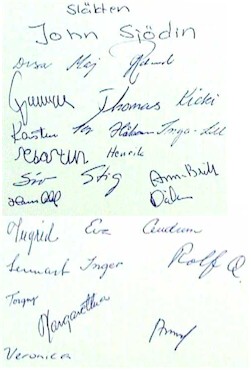 Släkten
John Sjödin
Disa Maj
Gunnar Thomas Kicki
Karsten Håkan Inga-Lill
Martin Henrik
Siv Stig Ann-Britt
Ingrid Eva Gudrun
Lennart Inger Rolf
Torgny
Margaretha
Veronica